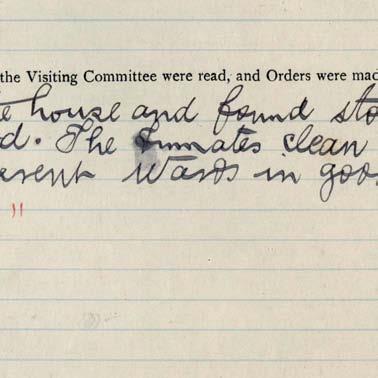 the Visiting Committee were read, and Orders were mad
te house and found sto
d. The Inmates clean
erent Wards in goo
"